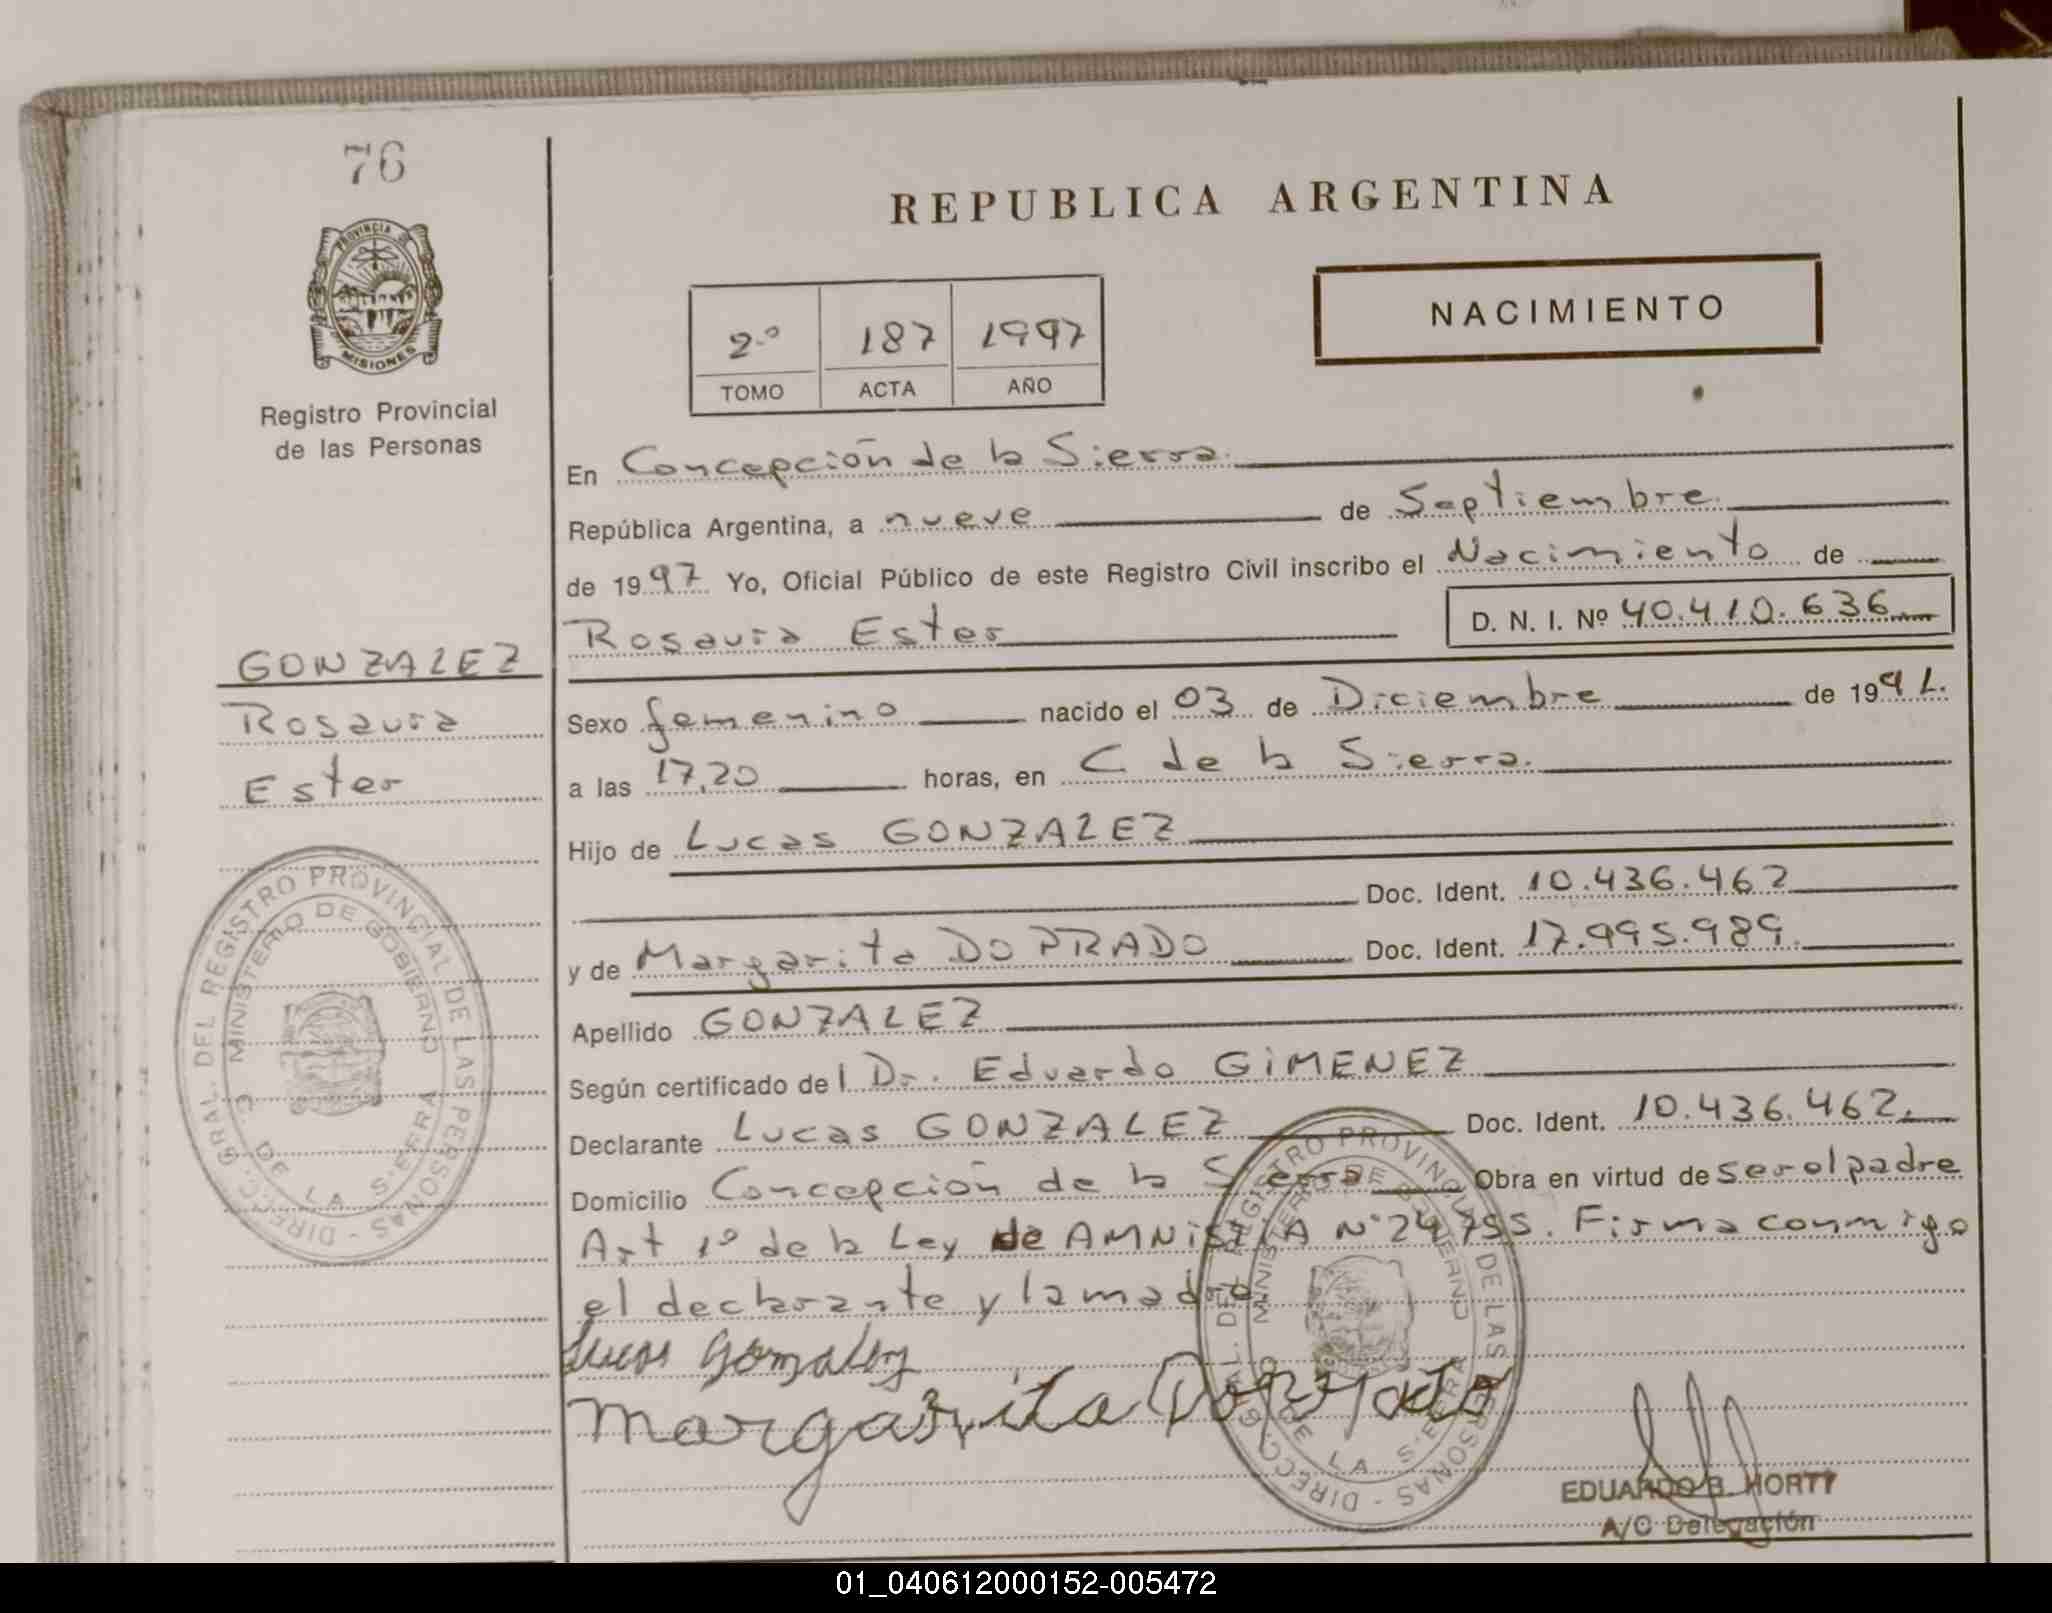 76
PROVINCIA DE
MISIONES
Registro Provincial
de las Personas
REPUBLICA ARGENTINA
NACIMIENTO
2º 187 1997
TOMO ACTA AÑO
En Concepción de la Sierra
República Argentina, a nueve de Septiembre
de 1997 Yo, Oficial Público de este Registro Civil inscribo el Nacimiento de
Rosaura Ester D. N. I. Nº 40.410.636
GONZALEZ
Rosaura
Ester
Sexo femenino nacido el 03 de Diciembre de 199
a las 17,20 horas, en C de la Sierra.
Hijo de Lucas GONZALEZ
Doc. Ident. 10.436.462
y de Margarita DO PRADO Doc. Ident. 17.995.989
Apellido GONZALEZ
Según certificado del Dr. Eduardo GiMENEZ
Declarante Lucas GONZALEZ Doc. Ident. 10.436.462
Domicilio Concepción de la Sierra Obra en virtud de ser el padre
Art 1º de la Ley de AMNiSTiA Nº 24.755. Firma conmigo
el declarante y la madre
Lucas Gonzalez
Margarita Do Prado
DIRECC. GRAL. DEL REGISTRO PROVINCIAL DE LAS PERSONAS
MINISTERIO DE GOBIERNO
C. DE LA SIERRA
DIRECC. GRAL. DEL REGISTRO PROVINCIAL DE LAS PERSONAS
MINISTERIO DE GOBIERNO
C. DE LA SIERRA
EDUARDO B. HORTT
A/C Delegación
01_040612000152-005472